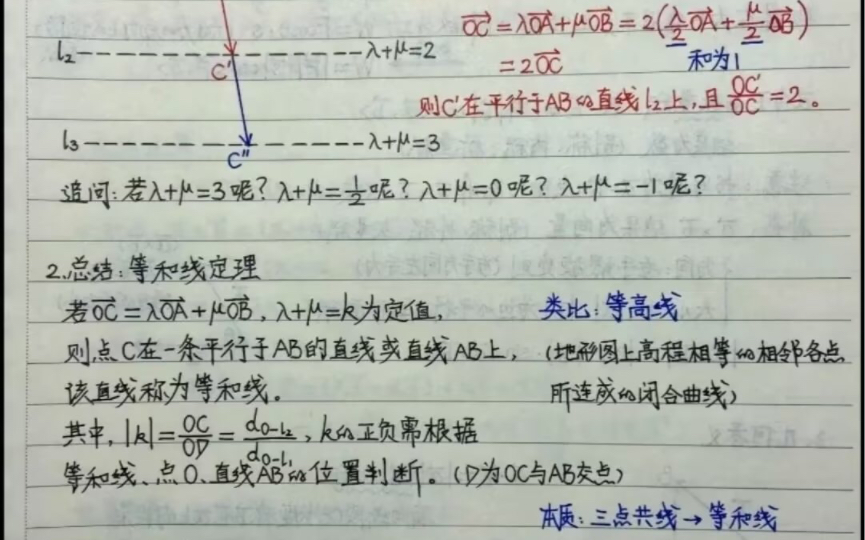 OC = λOA + μOB = 2(λ/2 OA + μ/2 OB)
l₂ λ+μ=2
C' 和为1
= 2OC
则C'在平行于AB的直线l₂上,且OC'/OC=2。
l₃ λ+μ=3
C''
追问:若λ+μ=3呢?λ+μ=1/2呢?λ+μ=0呢?λ+μ=-1呢?
2.总结:等和线定理
若OC=λOA+μOB,λ+μ=k为定值, 类比:等高线
则点C在一条平行于AB的直线或直线AB上, (地形图上高程相等的相邻各点
该直线称为等和线。 所连成的闭合曲线)
其中,|k|=OC/OD=d₀₋ₗ₂/d₀₋ₗ₁,k的正负需根据
等和线、点O、直线AB的位置判断。(D为OC与AB交点)
本质:三点共线→等和线